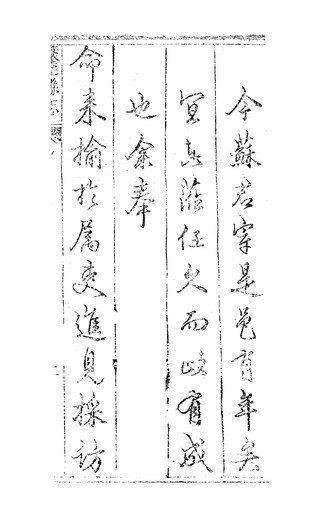 今蘇君宰是邑有年矣
宜其蒞任久而政有成
也余奉
命来撫於属吏進見採訪